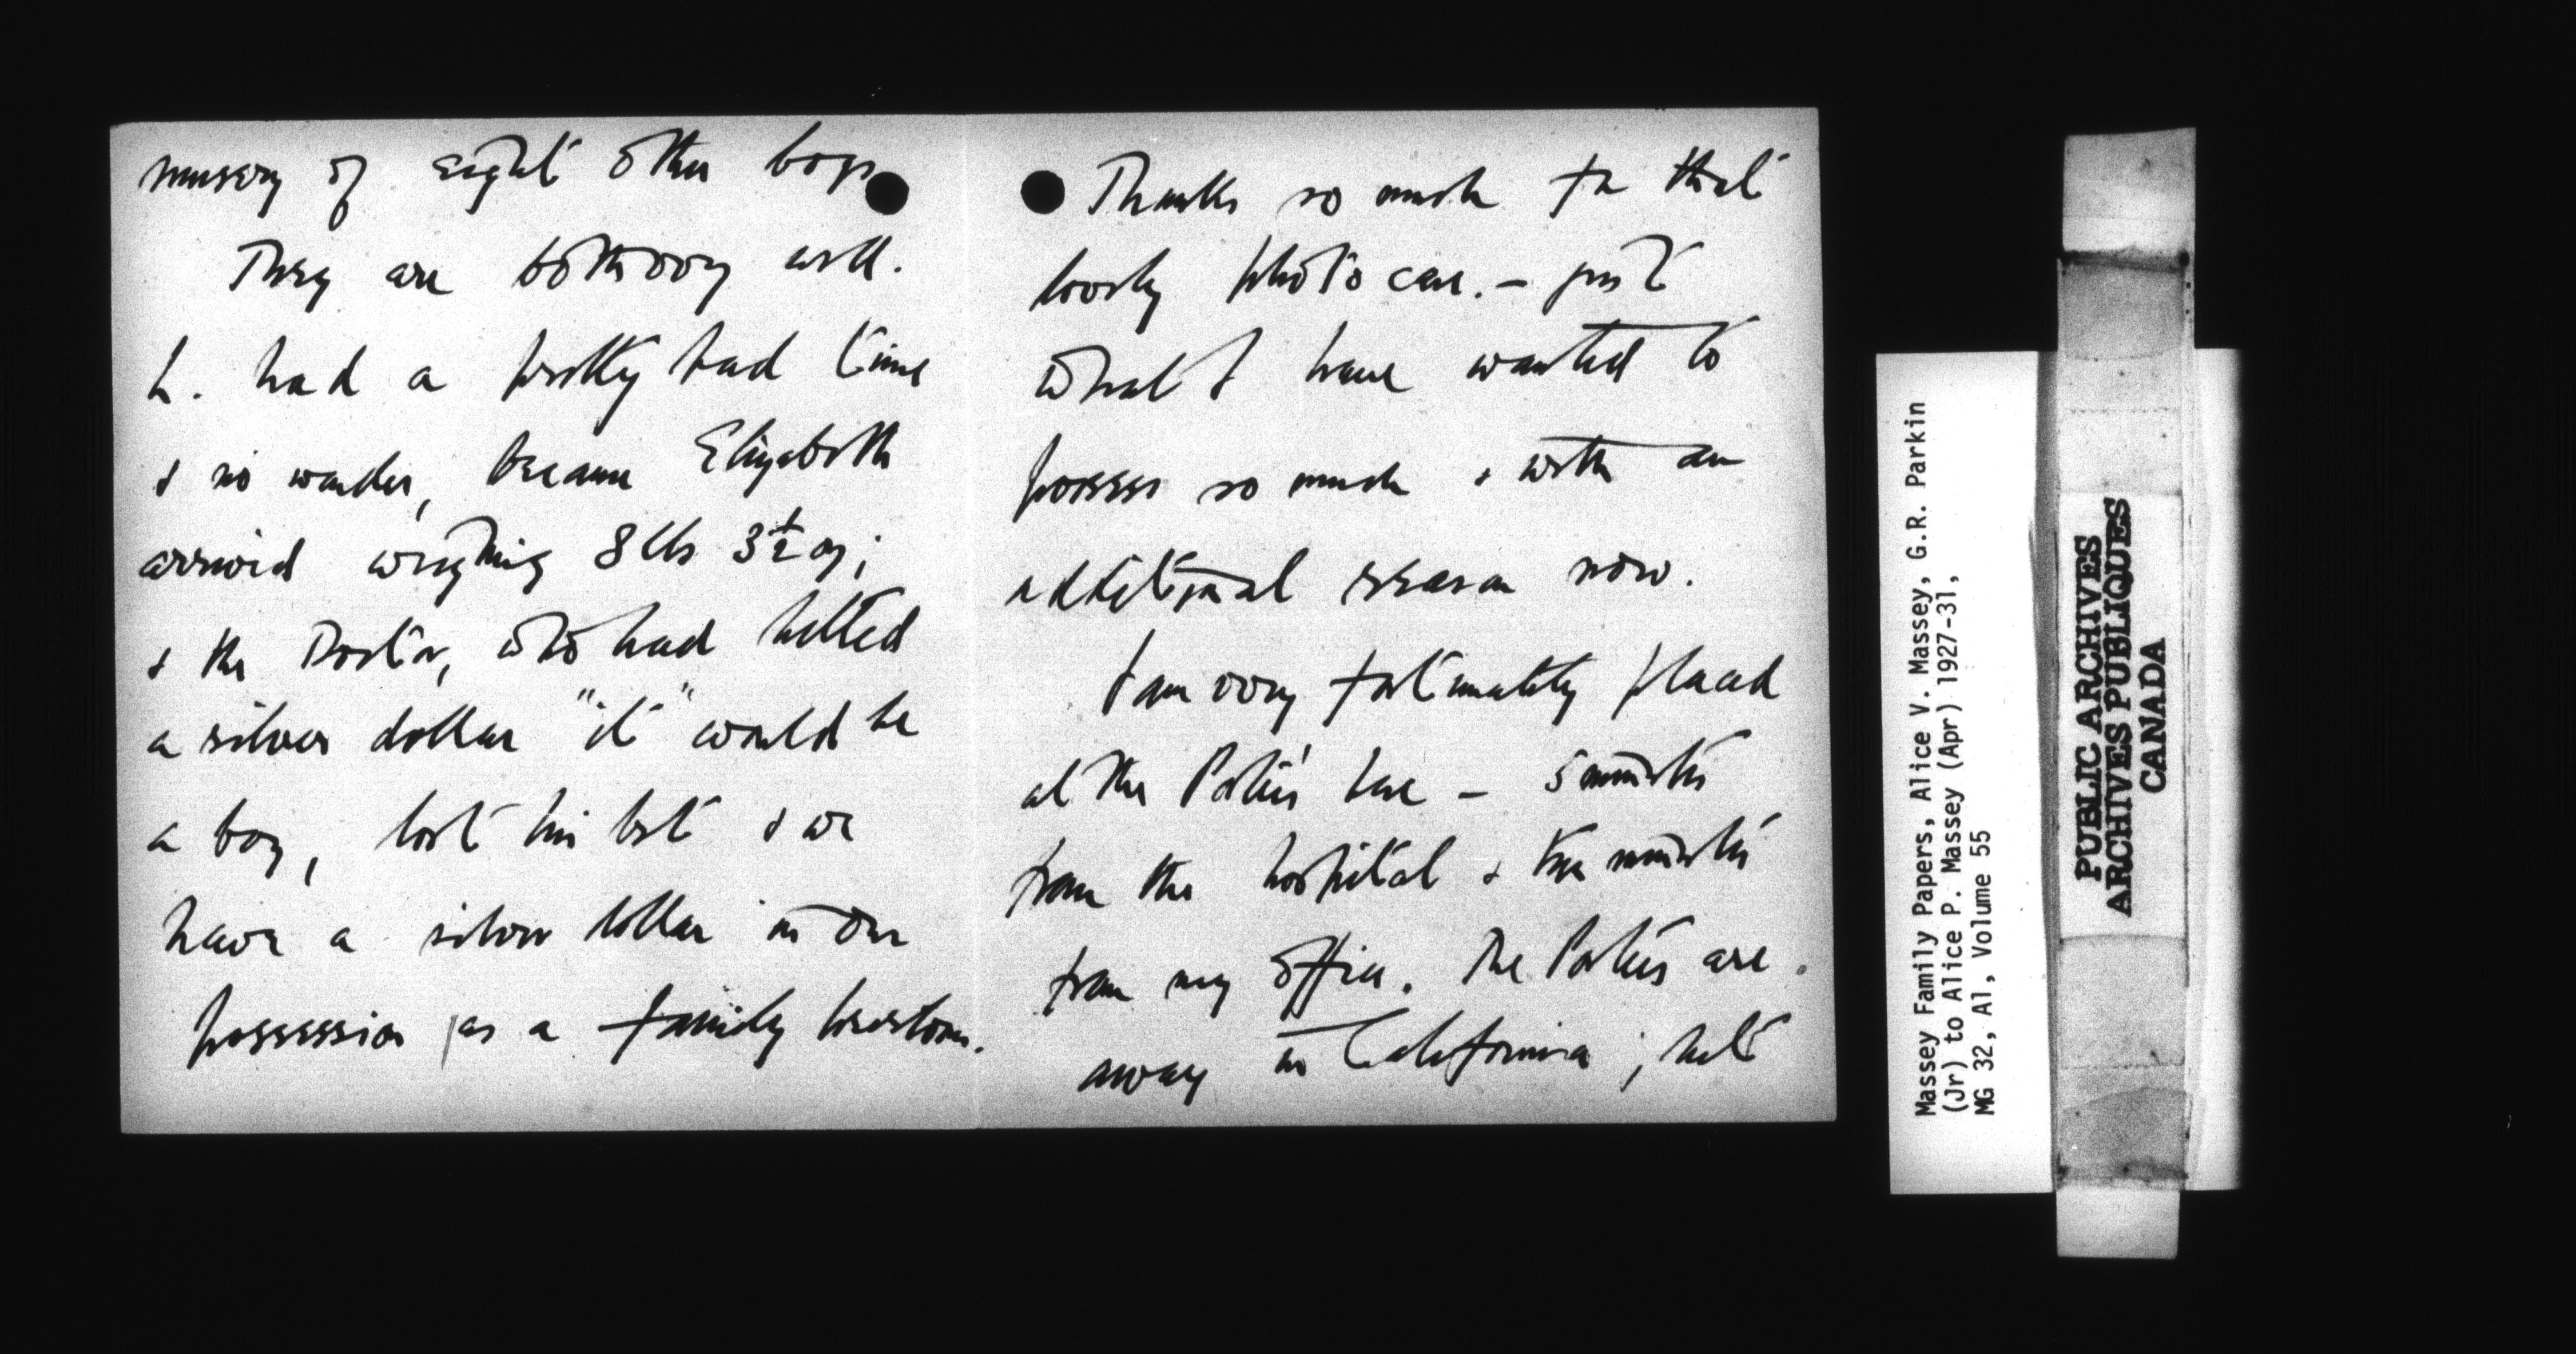 nursery of eight other boys
They are both very well.
L. had a pretty bad time
& no wonder, because Elizabeth
arrived weighing 8 lbs 3½ oz;
& the Doctor, who had betted
a silver dollar "it" would be
a boy, lost his bet & we
have a silver dollar in our
possession as a family heirloom.
Thanks so much for that
lovely photo case. - just
what I have wanted to
possess so much & with an
additional reason now.
I am very fortunately placed
at the Porters' here - 5 minutes
from the hospital & minutes
from my office. The Porters are
away in California; but
Massey Family Papers, Alice V. Massey, G.R. Parkin
(Jr) to Alice P. Massey (Apr) 1927-31,
MG 32, A1, Volume 55
PUBLIC ARCHIVES
ARCHIVES PUBLIQUES
CANADA